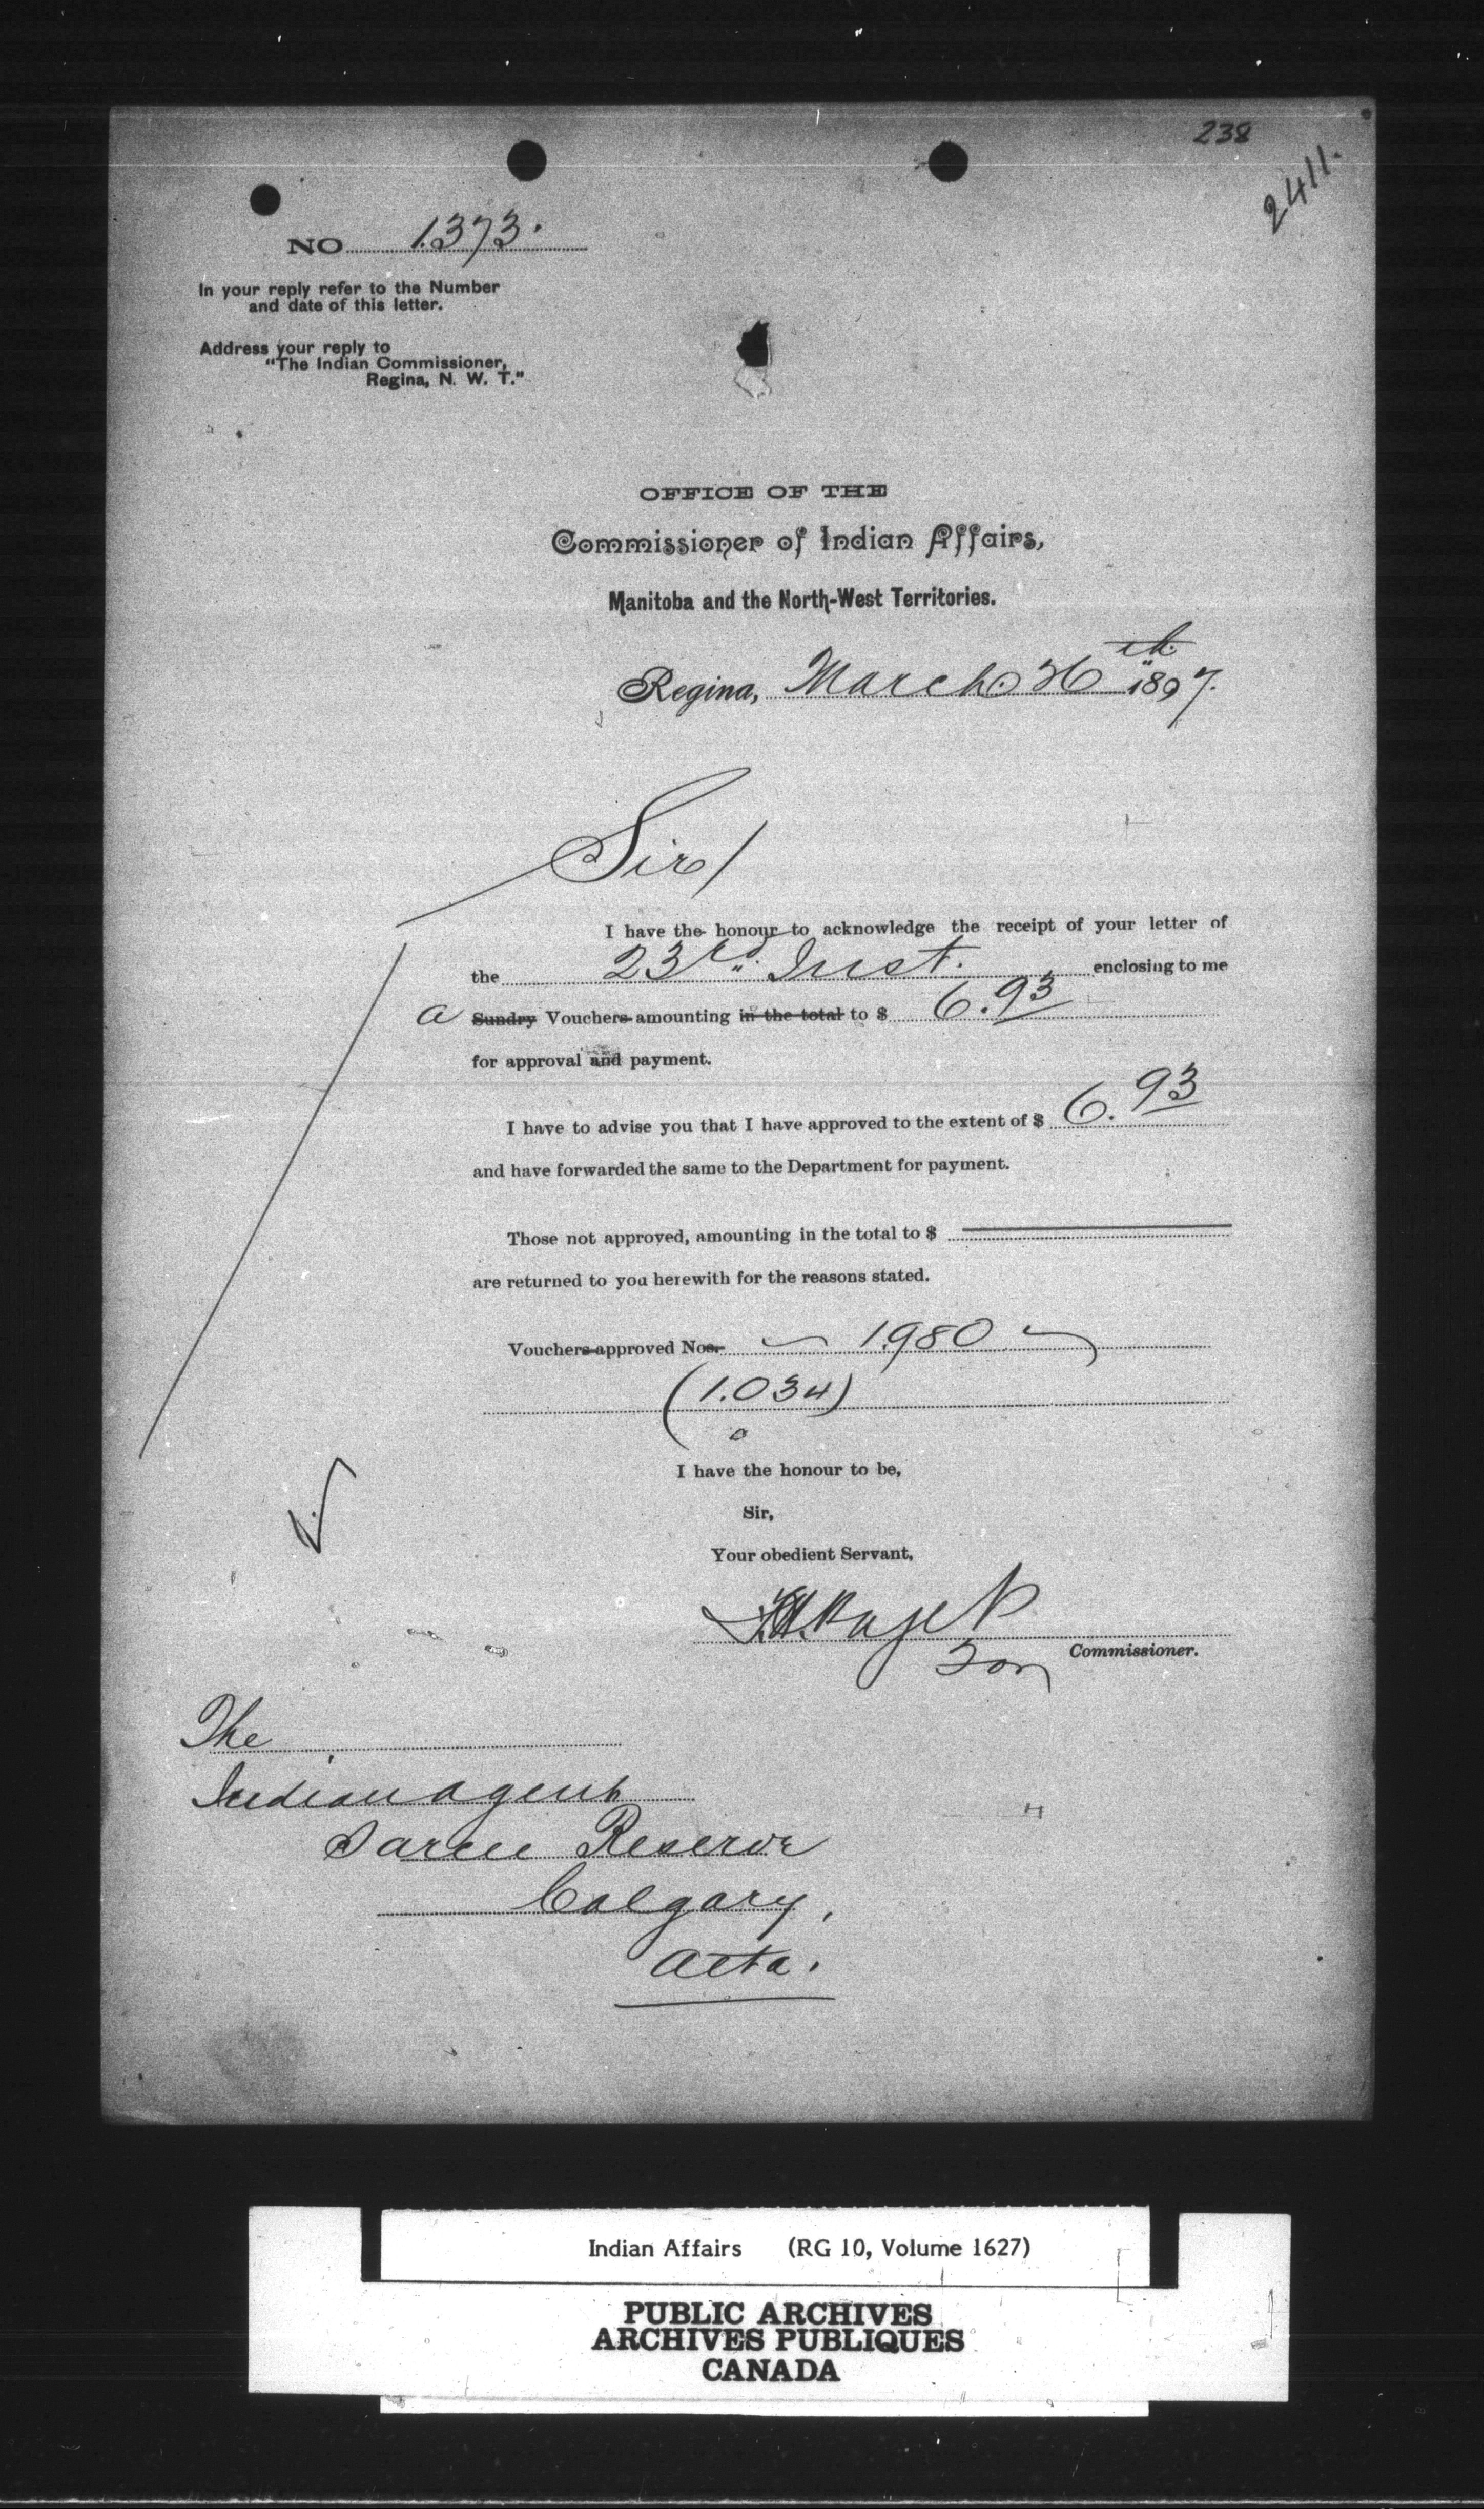 238
2411.
NO 1373.
In your reply refer to the Number
and date of this letter.
Address your reply to
"The Indian Commissioner,
Regina, N. W. T."
OFFICE OF THE
Commissioner of Indian Affairs,
Manitoba and the North-West Territories.
Regina, March 26th 1897.
Sir/
I have the honour to acknowledge the receipt of your letter of
the 23rd Inst. enclosing to me
a Sundry Vouchers amounting in the total to $ 6.93
for approval and payment.
I have to advise you that I have approved to the extent of $ 6.93
and have forwarded the same to the Department for payment.
Those not approved, amounting in the total to $
are returned to you herewith for the reasons stated.
Vouchers approved Nos. 1980
(1.034)
I have the honour to be,
Sir,
Your obedient Servant,
for Commissioner.
The
Indian agent
Sarcee Reserve
Calgary,
Alta.
Indian Affairs (RG 10, Volume 1627)
PUBLIC ARCHIVES
ARCHIVES PUBLIQUES
CANADA